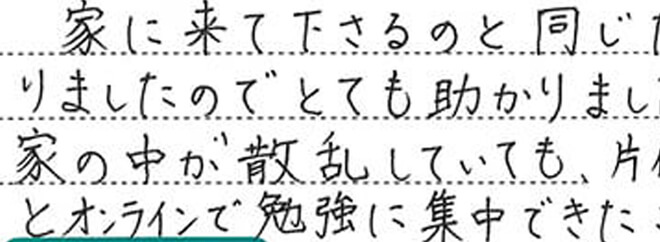 家に来て下さるのと同じ
りましたのでとても助かりまし
家の中が散乱していても、片
とオンラインで勉強に集中できた